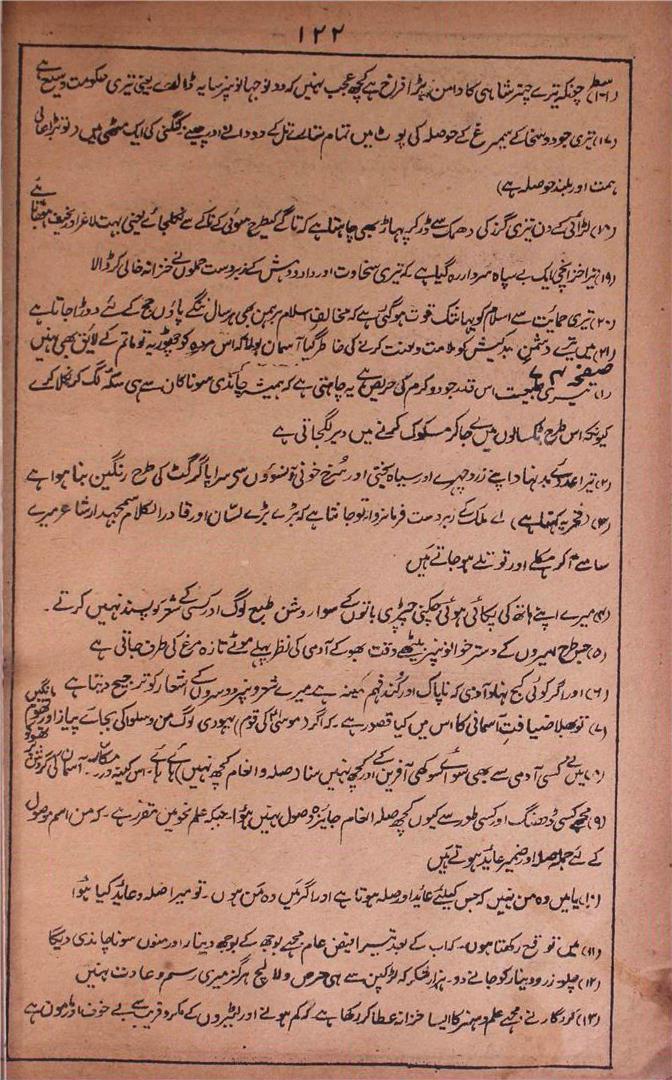 ۱۲۲
(۱۶) چونکہ تیرے چتر شاہی کا دامن بڑا فراخ ہے کچھ عجب نہیں کہ دونو جہانو نپر سایہ ڈالے یعنی تیری حکومت وسیع ہے
(۱۷) تیری جود و سخا کے سیمرغ کے حوصلہ کی پوٹ میں تمام ستارے تل کے دو دانے اور کنگنی کی ایک مٹھی ہیں (تو بڑا عالی
ہمت اور بلند حوصلہ ہے)
(۱۸) لڑائی کے دن تیری گرز کی دھمک سے ڈر کر پہاڑ بھی چاہتا ہے کہ تاگے کیطرح سوئی کے ناکے سے نکلجائے یعنی بہت لاغر اور نحیف
(۱۹) تیرا خزانچی ایک بے سپاہ سردار رہ گیا ہے کہ تیری سخاوت اور داد و دہش کے زبردست حملوں نے خزانہ خالی کر ڈالا
(۲۰) تیری حمایت سے اسلام کو یہانتک قوت ہوگئی ہے کہ مخالف اسلام برہمن بھی ہر سال ننگے پاؤں حج کے لئے دوڑا جاتا ہے
(۲۱) میں تیرے دشمن بدکیش کو ملامت و لعنت کرنے کی خاطر گیا آسمان بولا کہ اس مردہ کو چھوڑ یہ تو ماتم کے لایق بھی نہیں
صفحہ ۷۴
(۱) تیری طبیعت اس قدر جود و کرم کی حریص ہے یہ چاہتی ہے کہ ہمیشہ چاندی سونا کان سے ہی سکہ لگ کر نکلا کرے
کیونکہ اس طرح ٹکسالوں میں لے جا کر مسکوک کرنے میں دیر لگجاتی ہے
(۲) تیرا عدو بدنہاد اپنے زرد چہرے اور سیاہ بختی اور سُرخ خونی آنسوؤں سے سراپا گرگٹ کی طرح رنگین بنا ہوا ہے
(۳) (فخریہ کہتا ہے) اے ملک کے زبردست فرمانروا تو جانتا ہے کہ بڑے بڑے لسّان اور قادر الکلام سمجہدار شاعر میرے
سامنے آکر ہکلے اور توتلے ہو جاتے ہیں
(۴) میرے اپنے ہاتھ کی پکائی ہوئی چکنی چپڑی باتوں کے سوا روشن طبع لوگ اور کسی کے شعر کو پسند نہیں کرتے۔
(۵) جس طرح امیروں کے دسترخوانو نپر بیٹھے وقت بھوکے آدمی کی نظر پہلے موٹے تازہ مرغ کی طرف جاتی ہے
(۶) اور اگر کوئی کج نہاد آدمی کہ ناپاک اور کُند فہم کمینہ ہے میرے شعرو نپر دوسروں کے اشعار کو ترجیح دیتا ہے
(۷) تو بھلا ضیافت آسمانی کا اس میں کیا قصور ہے۔ کہ اگر (موسیٰ کی قوم) یہودی لوگ من و سلویٰ کی بجائے پیاز اور تھوم مانگیں
(۸) میں نے کسی آدمی سے بھی سوائے سوکھی آفرین کے اور کچھ نہیں سنا (صلہ و انعام کچھ نہیں) ہائے ہائے۔ اس کمینہ آسمان کی گردش
(۹) مجھے کسی ڈھنگ اور کسی طور سے کیوں کچھ صلہ انعام جایزہ وصول نہیں ہوا۔ جبکہ علم نحو میں مقرر ہے۔ کہ من اسم موصول
کے لئے جملہ صلہ اور ضمیر عاید ہوتے ہیں
(۱۰) یا میں وہ من نہیں کہ جس کیلئے عاید اور صلہ ہوتا ہے اور اگر میں وہ من ہوں۔ تو میرا صلہ و عاید کیا ہوا
(۱۱) میں توقع رکھتا ہوں۔ کہ اب کے بعد تیرا فیض عام مجھے بوجھ کے بوجھ دینار اور منوں سونا چاندی دیگا
(۱۲) چلو زر و دینار کو جانے دو۔ ہزار شکر کہ لڑکپن سے ہی حرص و لالچ ہرگز میری رسم و عادت نہیں
(۱۳) کردگار نے مجھے علم و ہنر کا ایسا خزانہ عطا کر رکھا ہے کہ کم ہونے اور لٹیروں کے مکر و فریب سے بے خوف اور مامون ہے